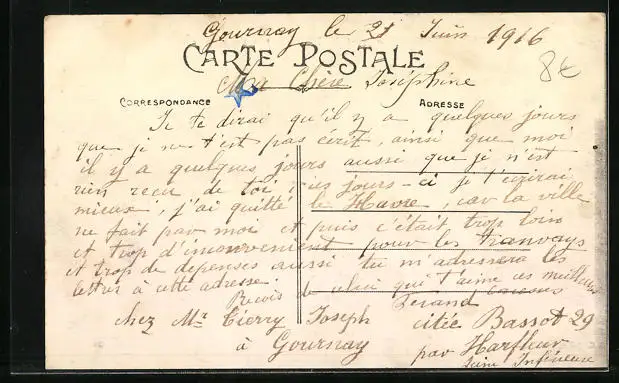 Gournay le 21 Juin 1916
8€
CARTE POSTALE
Ma Chère Joséphine
CORRESPONDANCE ADRESSE
Je te dirai qu'il y a quelques jours
que je ne t'est pas écrit, ainsi que moi
il y a quelques jours aussi que je n'est
rien recu de toi, ces jours-ci je t'ecrirai
mieux, j'ai quitté le Havre, car la ville
ne fait pas moi et puis c'était trop loin
et trop d'inconvement pour les tranvays
et trop de depenses aussi tu m'adressera les
lettres à cette adresse.
Recois de celui qui t'aime ces meilleurs
caresses
chez Mr Tierry Joseph citée Bassot 29
à Gournay par Harfleur
Seine Inférieure